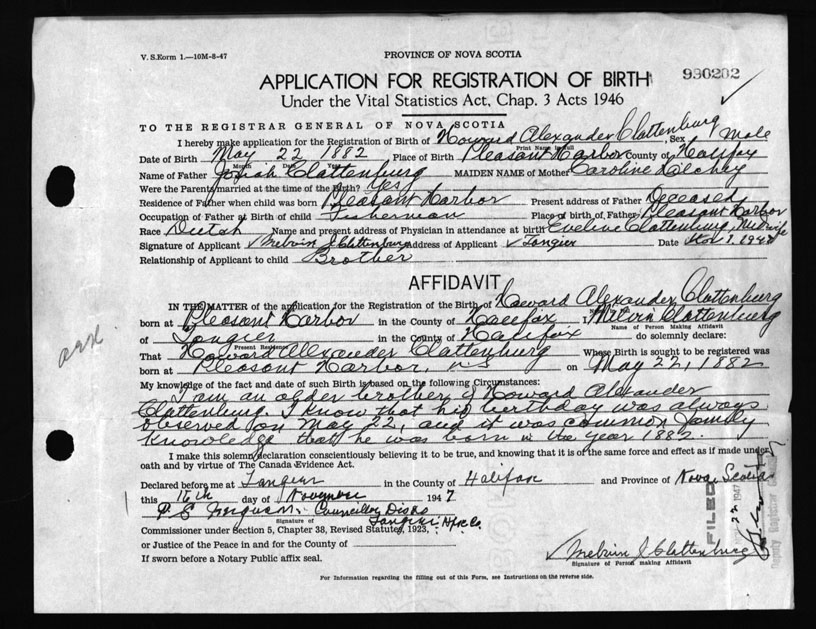 V. S. Form 1.—10M-8-47
PROVINCE OF NOVA SCOTIA
APPLICATION FOR REGISTRATION OF BIRTH
990202
Under the Vital Statistics Act, Chap. 3 Acts 1946
TO THE REGISTRAR GENERAL OF NOVA SCOTIA
I hereby make application for the Registration of Birth of Howard Alexander Clattenburg, Sex Male
Print Name in Full
Date of Birth May 22 1882 Place of Birth Pleasant Harbor County of Halifax
Month Day Year
Name of Father Josiah Clattenburg MAIDEN NAME of Mother Caroline
Were the Parents married at the time of the Birth? Yes
Residence of Father when child was born Pleasant Harbor Present address of Father Deceased
Occupation of Father at Birth of child Fisherman Place of birth of Father Pleasant Harbor
Race Dutch Name and present address of Physician in attendance at birth Eveline Clattenburg, Midwife
Signature of Applicant Melvin J Clattenburg Address of Applicant Tangier Date 1, 1947
Relationship of Applicant to child Brother
AFFIDAVIT
IN THE MATTER of the application for the Registration of the Birth of Howard Alexander Clattenburg
born at Pleasant Harbor in the County of Halifax I, Melvin Clattenburg
Name of Person Making Affidavit
of Tangier in the County of Halifax do solemnly declare:
Present Residence
That Howard Alexander Clattenburg Whose Birth is sought to be registered was
born at Pleasant Harbor, N S on May 22, 1882
My knowledge of the fact and date of such Birth is based on the following Circumstances:
I am an older brother of Howard Alexander
Clattenburg. I know that his birthday was always
observed on May 22, and it was common family
knowledge that he was born in the year 1882.
I make this solemn declaration conscientiously believing it to be true, and knowing that it is of the same force and effect as if made under
oath and by virtue of The Canada Evidence Act.
Declared before me at Tangier in the County of Halifax and Province of Nova Scotia
this 16th day of November 1947
Councillor Dis
Signature of
Tangier Hfx Co.
Commissioner under Section 5, Chapter 38, Revised Statutes, 1923,
or Justice of the Peace in and for the County of
If sworn before a Notary Public affix seal.
Melvin J Clattenburg
Signature of Person making Affidavit
For Information regarding the filling out of this Form, see Instructions on the reverse side.
FILED
22 1947
Deputy Registrar General